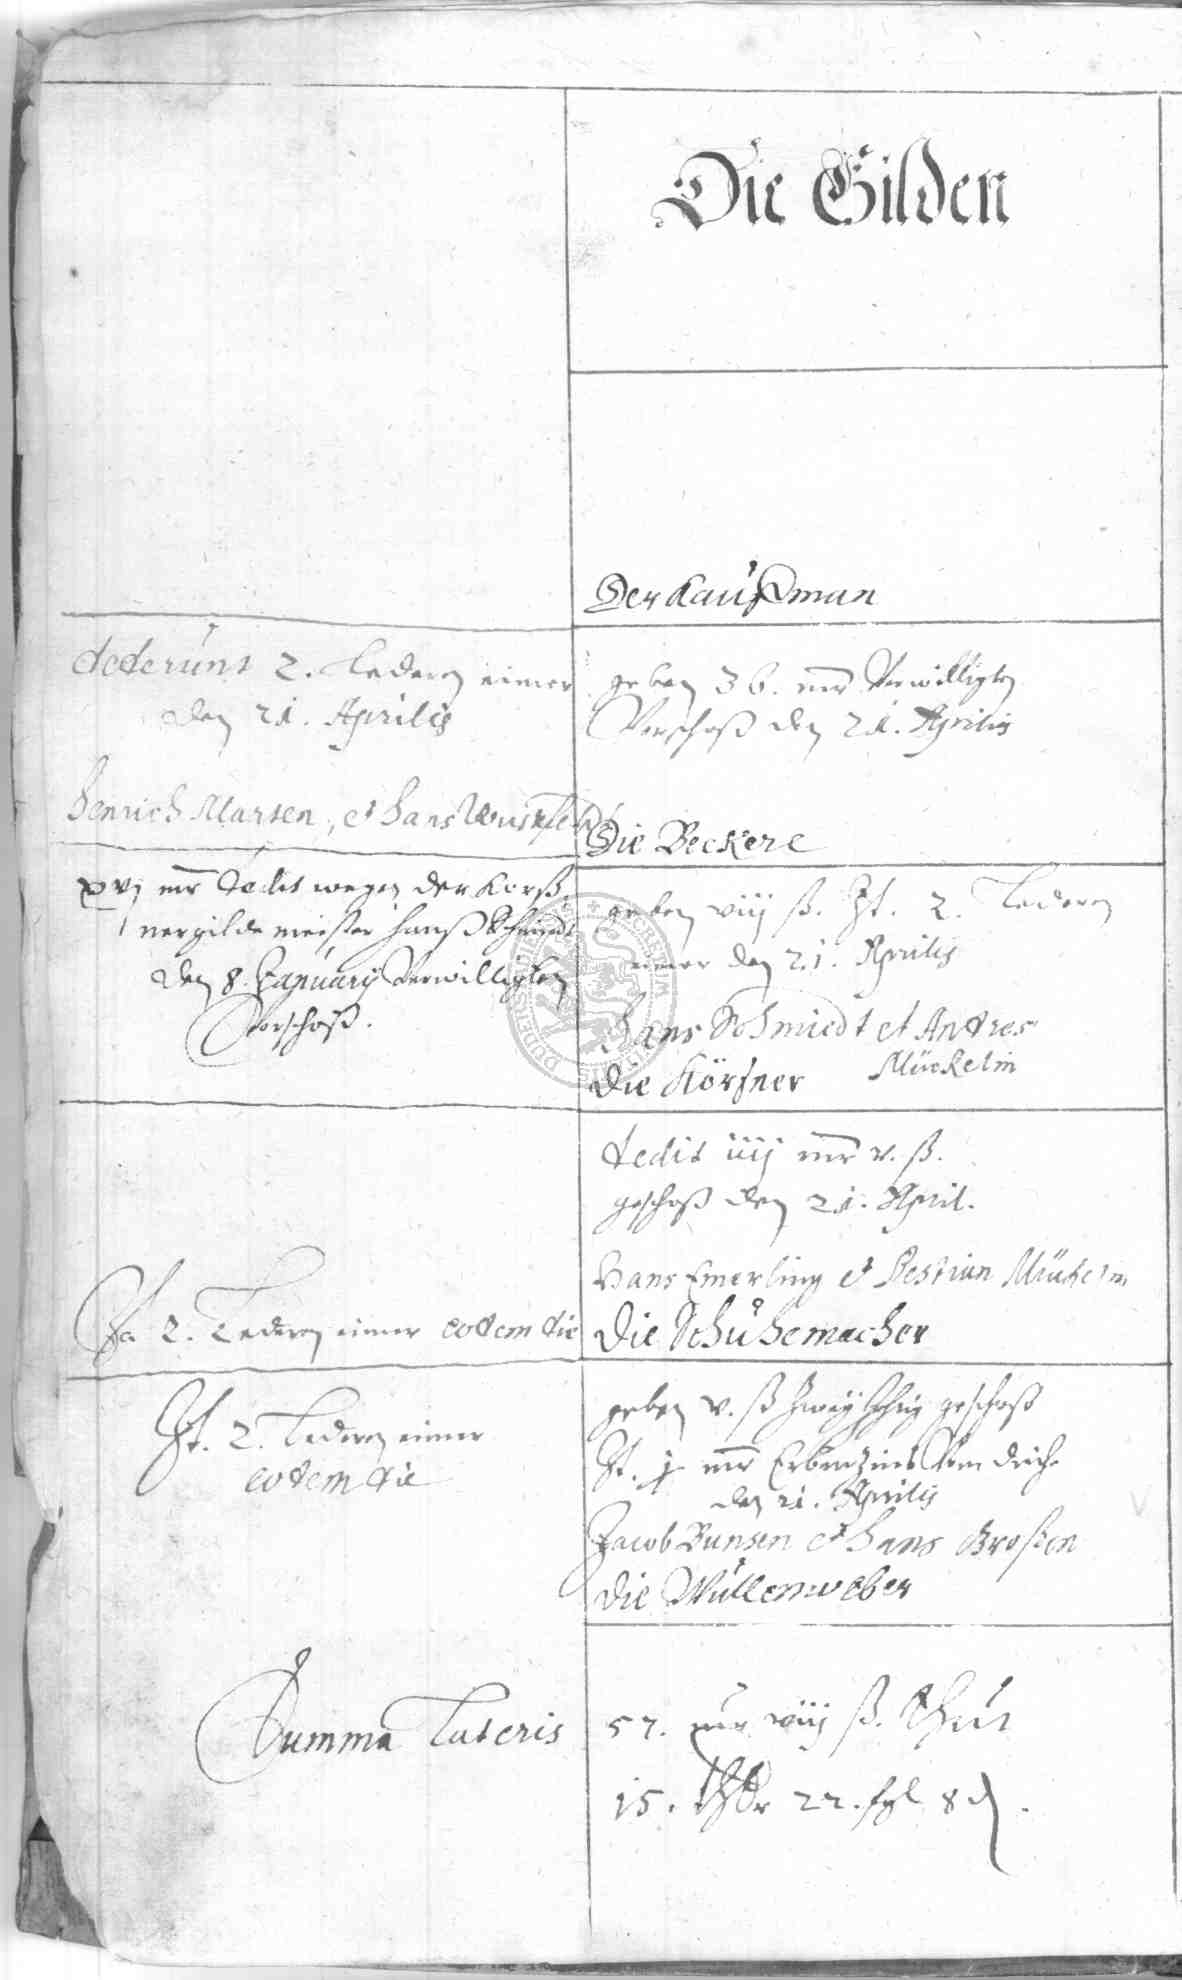 Die Gilden
Der Kauffman
dederunt 2. Lederen eimer
den 21. Aprilis
geben 36. mr verwilligten
Vorschoß den 21. Aprilis
Henrich Marten, et Hans
Die Beckere
xvj mr dedit wegen der Korß
nergilde meister Hanß Schmidt
den 8. January Verwilligten
Vorschoß.
geben viij ß. It. 2. Lederen
eimer den 21. Aprilis
Hans Schmiedt et Andres
Mückelm
Die Körsner
dedit iiij mr v. ß.
geschoß den 21. April.
Hans Emerling et Bestian
2. Lederen eimer eodem die
Die Schuhemacher
It. 2. Lederen eimer
eodem die
geben v. ß geschoß
It. j mr Erbenzins
den 21. Aprilis
Jacob Bunsen et Hans Großen
Die Wullenweber
Summa Lateris
57. mr viij ß. thut
15. thlr 22. sgl 8 d.